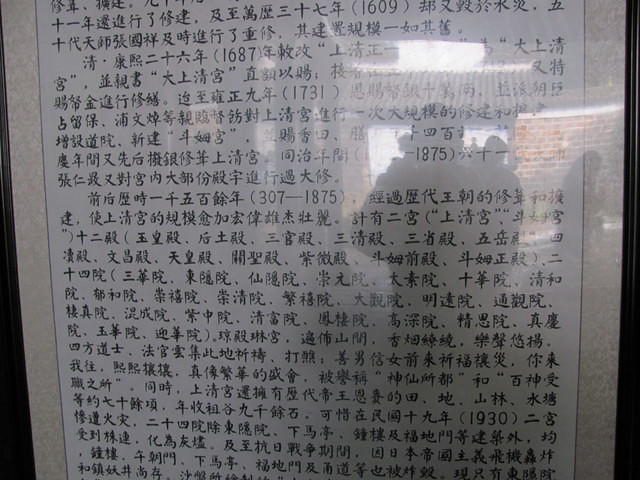 修葺、擴建。
十一年還進行了修建，及至萬歷三十七年（1609）却又毀於水災，五
十代天師張國祥及時進行了重修，其建置規模一如其舊。
清·康熙二十六年（1687)年敕改“上清正一 為“大上清
宮”，並親書“大上清宮”直額以賜； 又特
賜帑金進行修繕。迨至雍正九年（1731）恩賜帑銀十萬兩，並派朝臣
占留保、浦文焯等親臨督飭對上清宮進行一次大規模的修建和擴建，
增設道院、新建“斗姆宮”，並賜香田、 千四百
慶年間又先后撥銀修葺上清宮。同治年間（ -1875)六十一
張仁晸又對宮内大部份殿宇進行過大修。
前后歷時一千五百餘年（307—1875），經過歷代王朝的修葺和擴
建，使上清宮的規模愈加宏偉雄杰壯麗。計有二宮（“上清宮”、“斗姆宮
”)十二殿（玉皇殿、后土殿、三官殿、三清殿、三省殿、五岳殿、四
瀆殿、文昌殿、天皇殿、關聖殿、紫微殿、斗姆前殿、斗姆正殿）、二
十四院（三華院、東隱院、仙隱院、崇元院、太素院、十華院、清和
院、郁和院、崇禧院、崇清院、繁禧院、大觀院、明遠院、通觀院、
棲真院、混成院、紫中院、清富院、鳳棲院、高深院、精思院、真慶
院、玉華院、迎華院）。琼殿琳宮，遍佈山間，香烟繞繞，樂聲悠揚。
四方道士、法官雲集此地祈禱、打醮；善男信女前來祈福禳災，你來
我往，熙熙攘攘，真像繁華的盛會，被譽稱“神仙所都”和“百神受
職之所”，同時，上清宮還擁有歷代帝王恩賚的田、地、山林、水塘
等約七十餘頃，年收租谷九千餘石。可惜在民國十九年（1930）二宮
慘遭火灾，二十四院除東隱院、下馬亭、鐘樓及福地門等建築外，均
受到株連，化為灰燼，及至抗日戰爭期間，因日本帝國主義飛機轟炸
，鐘樓、午朝門、下馬亭、福地門及甬道等也被炸毀。現只有東隱院
和鎮妖井尚存，